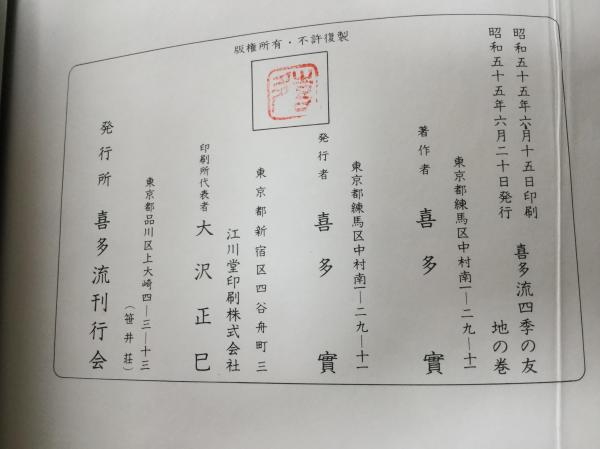 版権所有・不許復製
昭和五十五年六月十五日印刷
昭和五十五年六月二十日発行
喜多流四季の友
地の巻
東京都練馬区中村南一―二九―十一
著作者 喜多實
東京都練馬区中村南一―二九―十一
発行者 喜多實
東京都新宿区四谷舟町三
江川堂印刷株式会社
印刷所代表者 大沢正巳
東京都品川区上大崎四―三―十三
(笹井荘)
発行所 喜多流刊行会